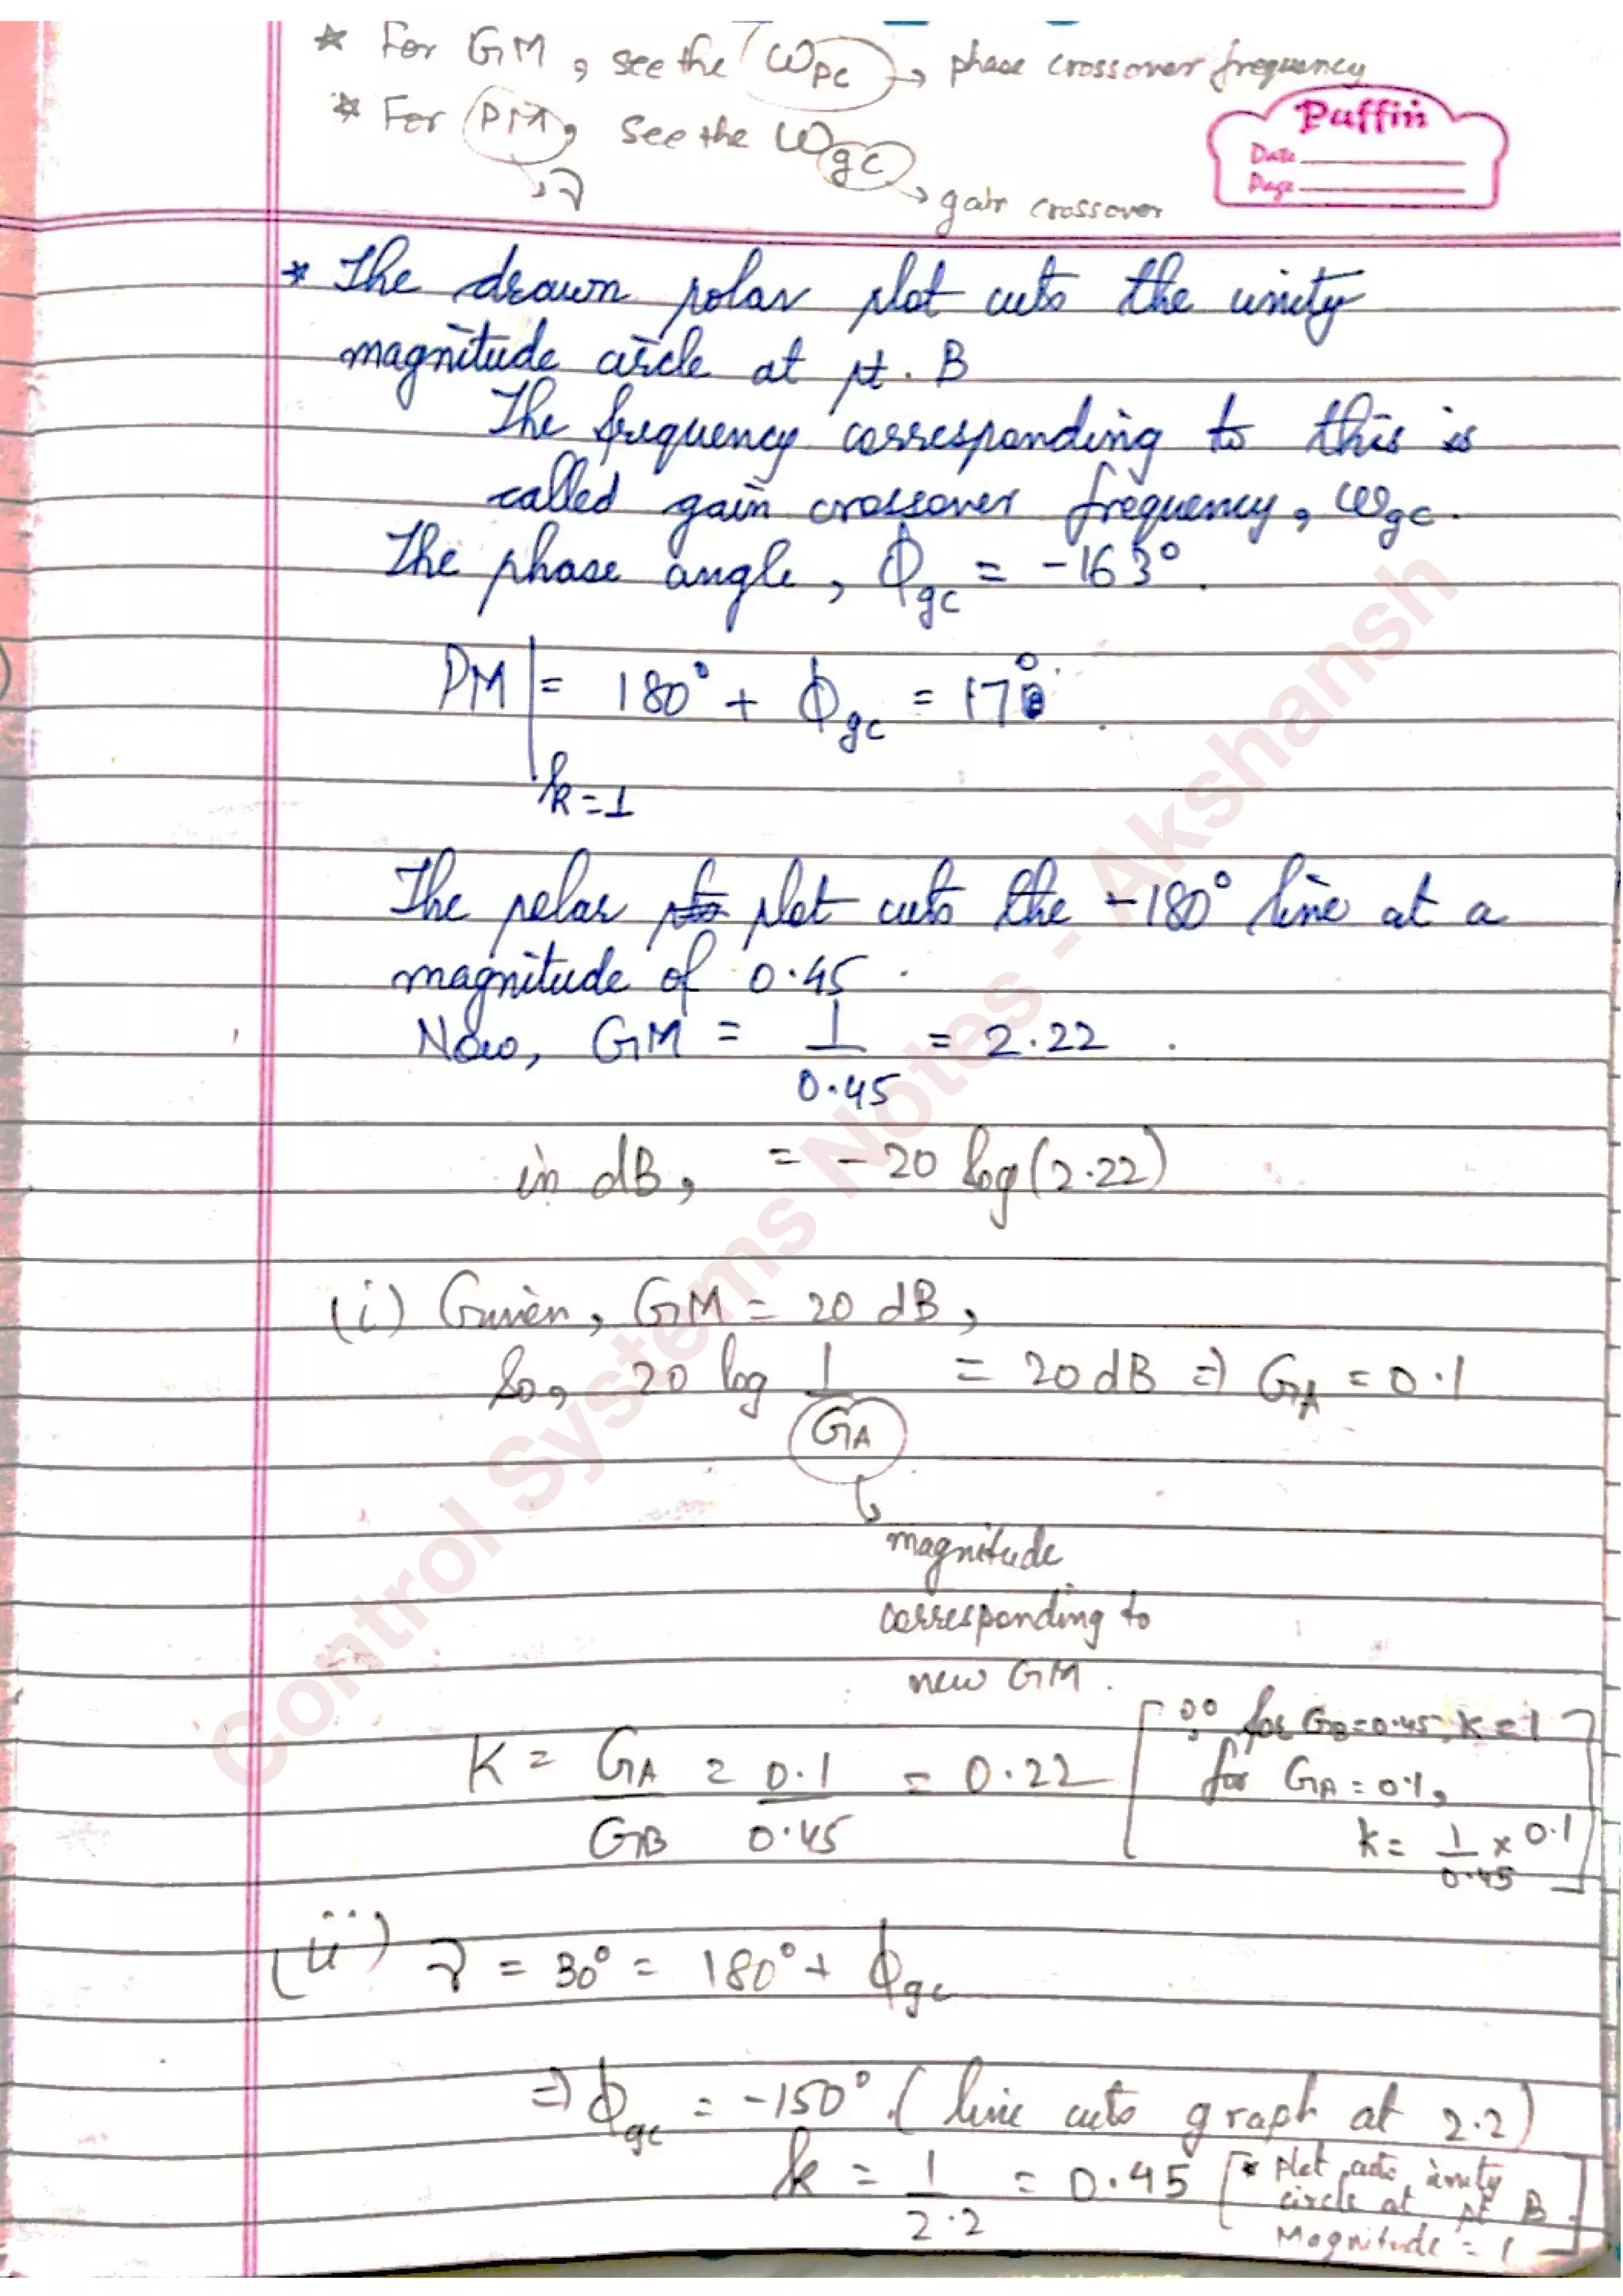 * For GM, see the ωpc → phase crossover frequency
* For PM, see the ωgc
→ γ
→ gain crossover
Puffin
Date
Page
* The drawn polar plot cuts the unity
magnitude circle at pt. B
The frequency corresponding to this is
called gain crossover frequency, ωgc.
The phase angle, ϕgc = -163°.
PM | = 180° + ϕgc = 17°
k=1
The polar plot cuts the -180° line at a
magnitude of 0.45.
Now, GM = 1/0.45 = 2.22.
in dB, = -20 log(2.22)
(i) Given, GM = 20 dB,
So, 20 log 1/GA = 20 dB ⇒ GA = 0.1
magnitude
corresponding to
new GM.
K = GA/GB = 0.1/0.45 = 0.22
[∵ for GB=0.45, K=1
for GA = 0.1,
k = 1/0.45 × 0.1]
(ii) γ = 30° = 180° + ϕgc
⇒ ϕgc = -150° (line cuts graph at 2.2)
k = 1/2.2 = 0.45
[* Plot cuts unity
circle at pt B.
Magnitude = 1]
Control Systems Notes - Akshansh